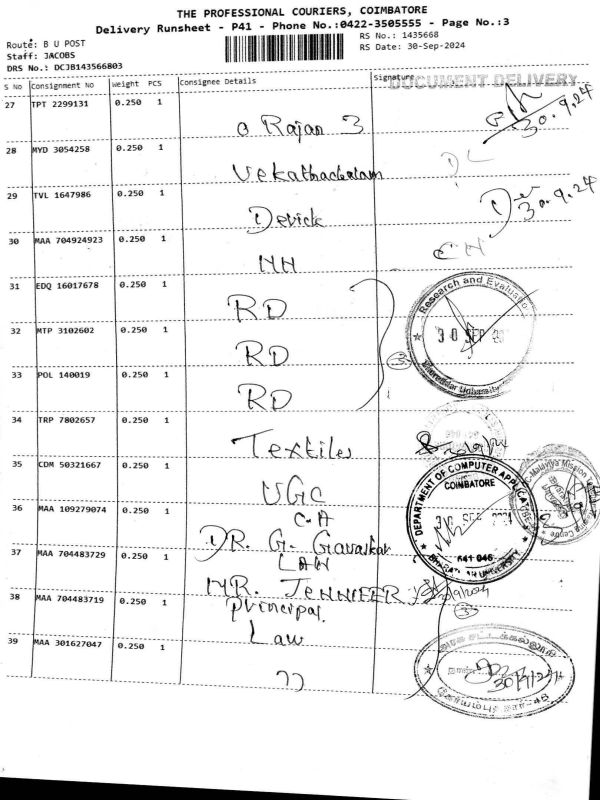 THE PROFESSIONAL COURIERS, COIMBATORE
Delivery Runsheet - P41 - Phone No.:0422-3505555 - Page No.:3
Route: B U POST
Staff: JACOBS
DRS No.: DCJB143566803
RS No.: 1435668
RS Date: 30-Sep-2024
S No Consignment No Weight PCS Consignee Details Signature
DOCUMENT DELIVERY
27 TPT 2299131 0.250 1 Rajan 3 30.9.24
28 MYD 3054258 0.250 1 Vekathachalam DL
29 TVL 1647986 0.250 1 Devick 30.9.24
30 MAA 704924923 0.250 1 NN
31 EDQ 16017678 0.250 1 RD
Research and Evaluation
30 SEP
32 MTP 3102602 0.250 1 RD
33 POL 140019 0.250 1 RD
Bharathiar University
34 TRP 7802657 0.250 1 Textiles
35 CDM 50321667 0.250 1 UGC
Malaviya Mission
Centre
DEPARTMENT OF COMPUTER APPLICATIONS
COIMBATORE
641 046
BHARATHIAR UNIVERSITY
36 MAA 109279074 0.250 1 C.A
DR. G. Gavaskar
37 MAA 704483729 0.250 1 LAW
MR. JENNIFER
38 MAA 704483719 0.250 1 Principal
Law
39 MAA 301627047 0.250 1 ))
அரசு சட்டக்கல்லூரி